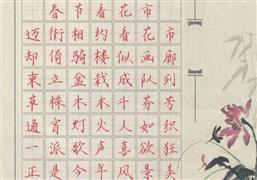 春节看花市
迈街相约看花市
却倚骑楼似画廊
束立盆栽成队列
草株木本斗芬芳
通宵灯火人如织
一派歌声喜欲狂
正是今年风景美